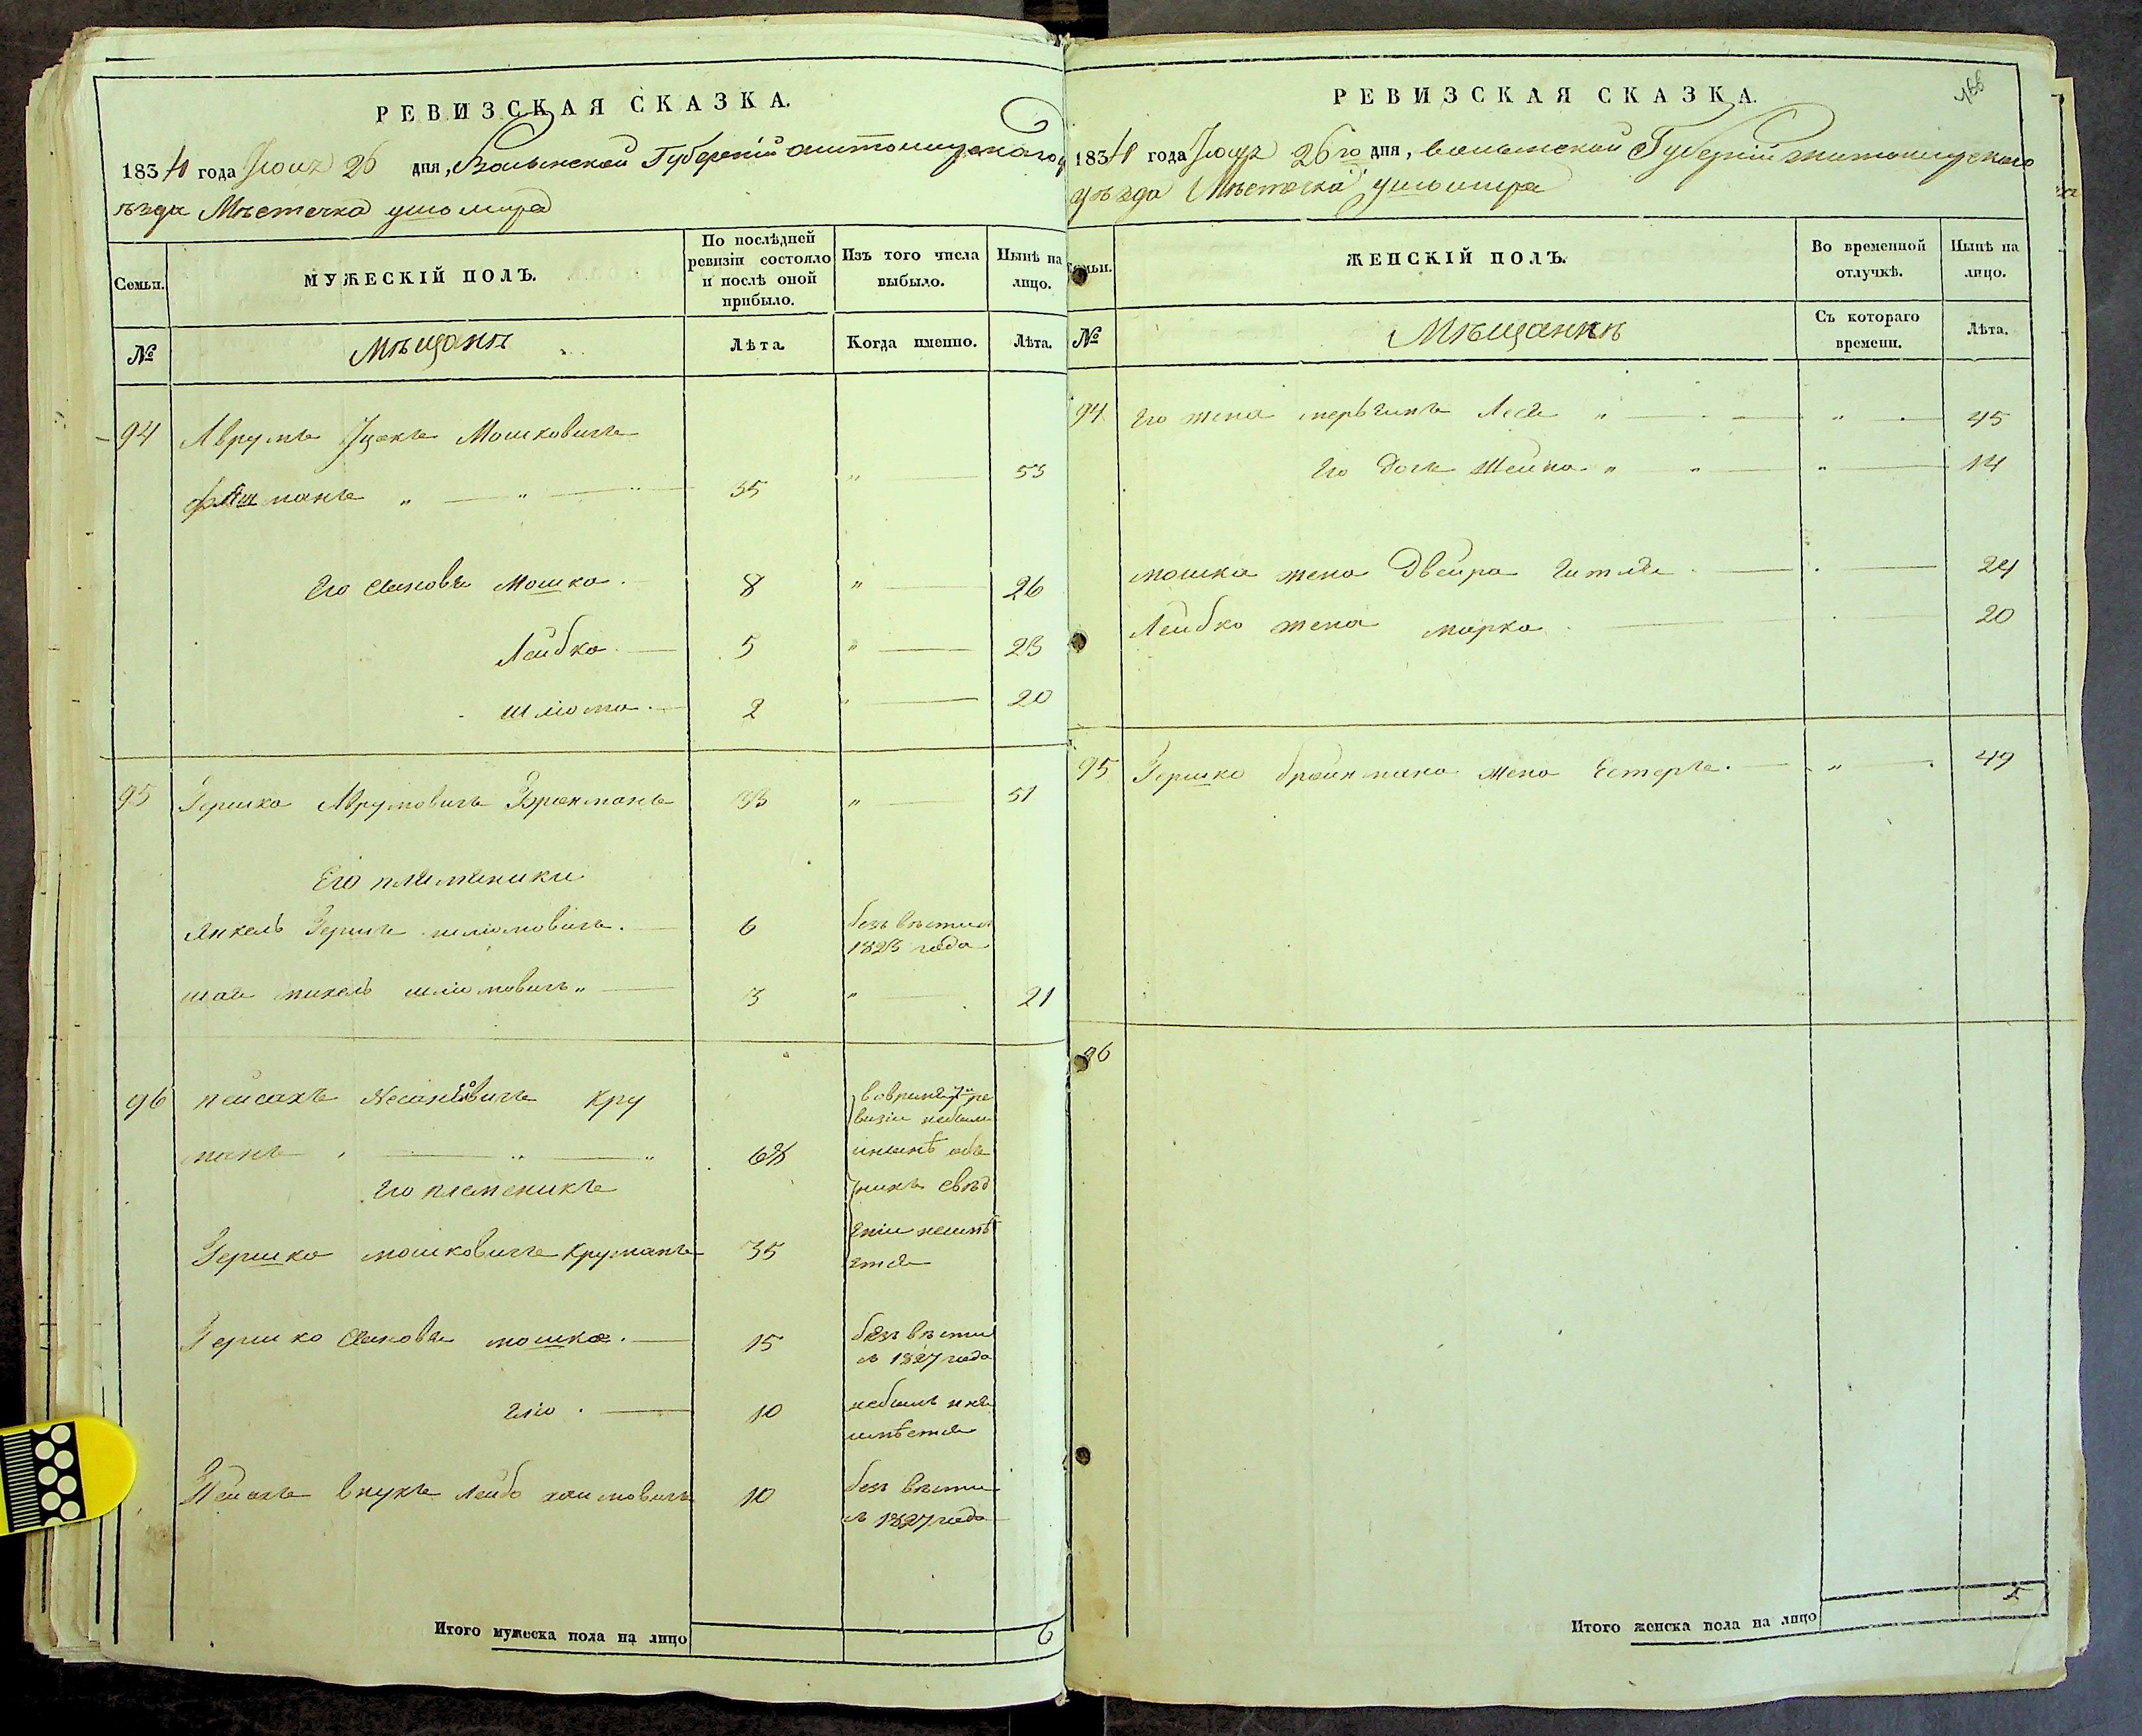 РЕВИЗСКАЯ СКАЗКА.
1834 года Июля 26 дня, Волынской Губерніи Житомирского у
ѣзда Мѣстечка Ушомира
Семьи.
МУЖЕСКІЙ ПОЛЪ.
По послѣдней ревизіи состояло и послѣ оной прибыло.
Изъ того числа выбыло.
Нынѣ на лицо.
№
Мѣщанъ
Лѣта.
Когда именно.
Лѣта.
94 Аврумъ Іцекъ Мошковичъ
манъ " — " — " 35 " — 53
Его Сыновья Мошко. 8 " — 26
Лейбко. — 5 " — 23
Шліома. — 2 " — 20
95 Гершко Аврумовичъ Браинманъ 33 " — 51
Его племяники
Янкель Гершъ Шліомовичъ. — 6 безъ вѣсти съ
1823 года
Шаи Михель Шліомовичъ " — 3 " — 21
96 Пейсахъ Кру
манъ " — " — " 68
Его племеникъ
Гершко Мошковичъ Круманъ 35
вовремя 7й ре
визіи небыли
инынѣ объ
нихъ свѣд
ѣніи неимѣ
етъся
Гершко Сыновья Мошко. — 15 безъ вѣсти
съ 1827 года
Еліо. — 10 небылъ и не
имѣется
Пейсахъ внукъ Лейбо Хаимовичъ 10 безъ вѣсти
съ 1827 года
Итого мужеска пола на лицо 6
166
РЕВИЗСКАЯ СКАЗКА.
1834 года Июля 26го дня, Волынской Губерніи Житомирского
уѣзда Мѣстечка Ушомира
Семьи.
ЖЕНСКІЙ ПОЛЪ.
Во временной отлучкѣ.
Нынѣ на лицо.
№
Мѣщанкѣ
Съ котораго времени.
Лѣта.
94 Его жена Лея " — " — 45
Его дочь Шейна " " — " — 14
Мошка жена Двейра Гитля. — . — 24
Лейбко жена Марка. — . — 20
95 Гершко Браинмана жена Естеръ. — " — 49
96
Итого женска пола на лицо 5